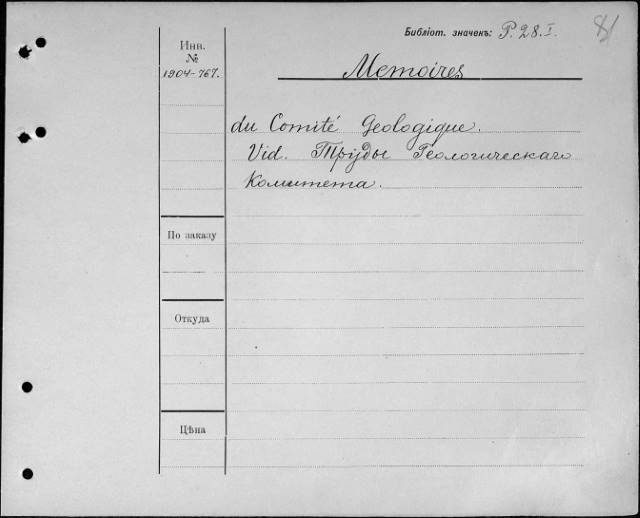 Библіот. значекъ: P. 28. I.
81
Инв. №
1904-767.
Memoires
du Comité Geologique.
Vid. Труды Геологическаго
Комитета.
По заказу
Откуда
Цѣна